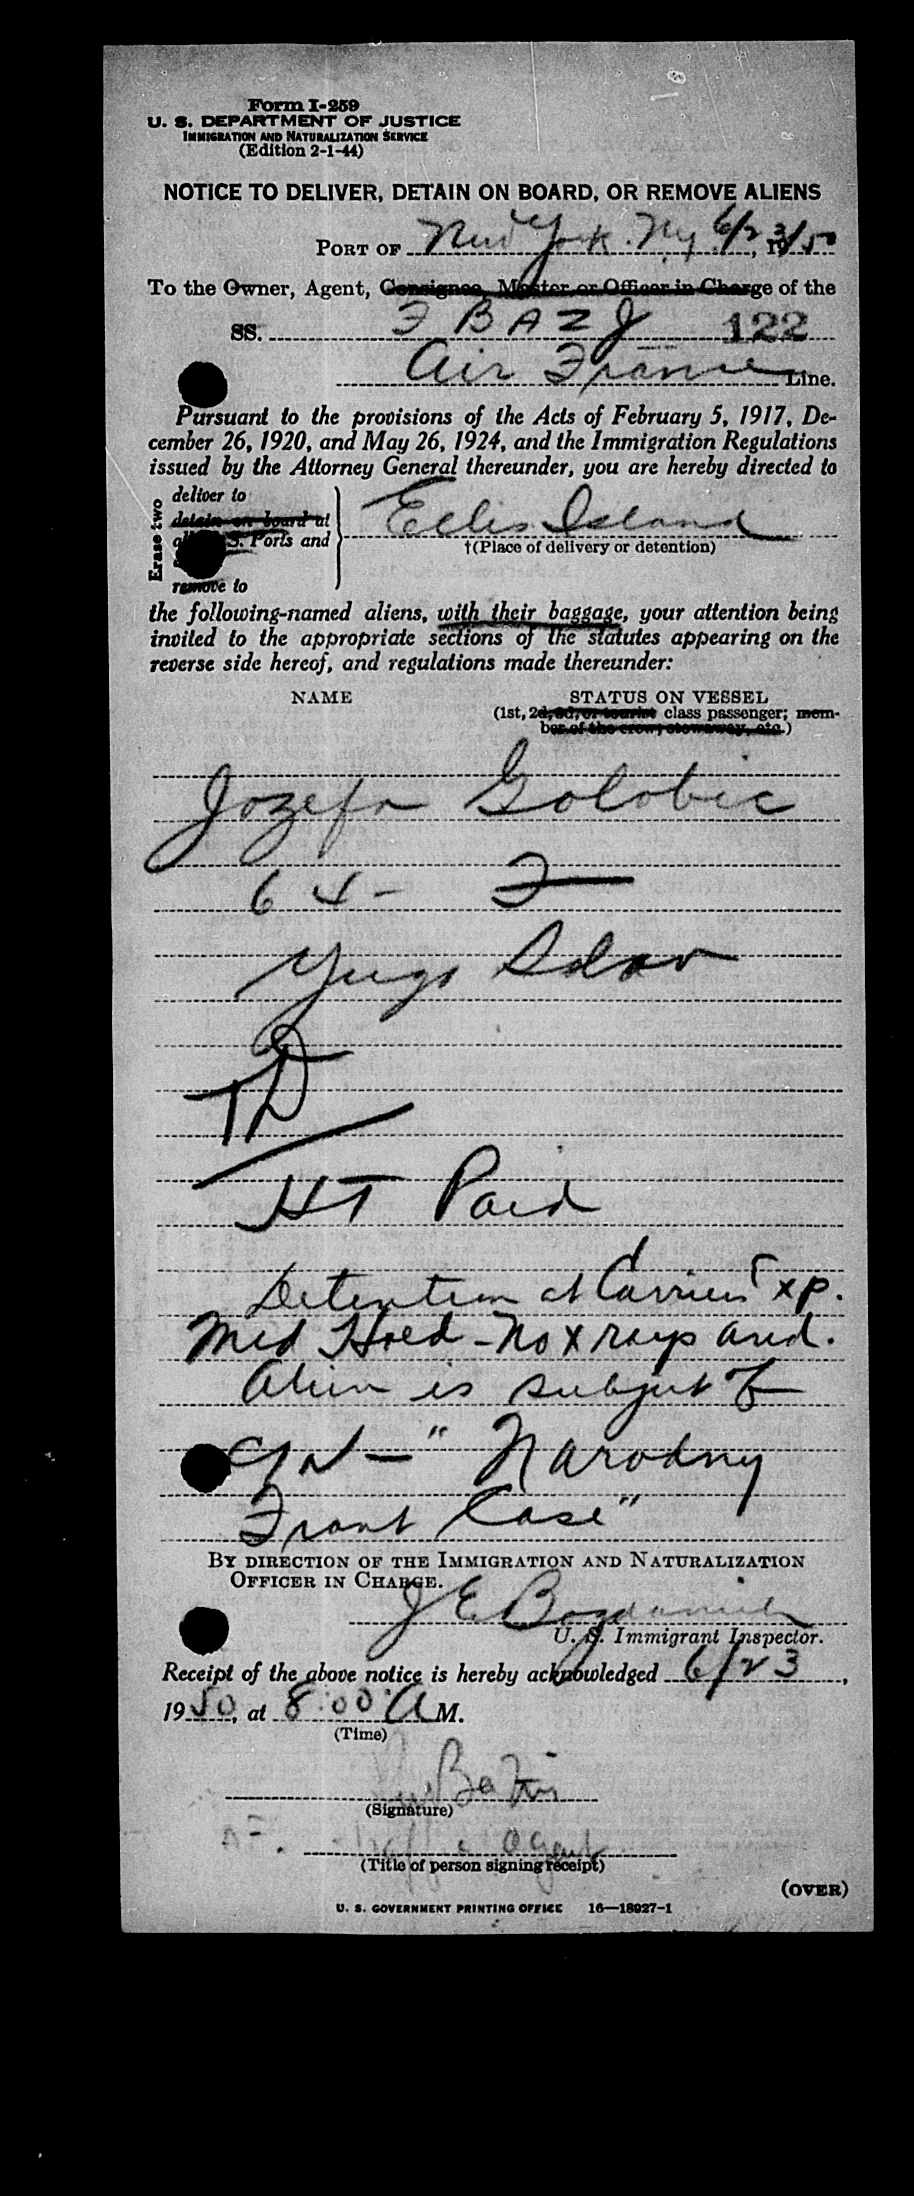 Form I-259
U. S. DEPARTMENT OF JUSTICE
IMMIGRATION AND NATURALIZATION SERVICE
(Edition 2-1-44)
NOTICE TO DELIVER, DETAIN ON BOARD, OR REMOVE ALIENS
PORT OF New York. Ny 6/23, 19/50
To the Owner, Agent, Consignee, Master or Officer in Charge of the
SS. F BAZJ 122
Air France Line.
Pursuant to the provisions of the Acts of February 5, 1917, De-
cember 26, 1920, and May 26, 1924, and the Immigration Regulations
issued by the Attorney General thereunder, you are hereby directed to
Erase two
deliver to
detain on board at
S. Ports and
remove to
Ellis Island
†(Place of delivery or detention)
the following-named aliens, with their baggage, your attention being
invited to the appropriate sections of the statutes appearing on the
reverse side hereof, and regulations made thereunder:
NAME STATUS ON VESSEL
(1st, 2d, 3d, or tourist class passenger; mem-
ber of the crew; stowaway, etc.)
Jozefa Golobic
64 - F
Yugo Slav
TD
HT Paid
Detention at Carriers Exp.
Med Hold - No x rays and.
Alien is subject of
"Narodny
Front Case"
BY DIRECTION OF THE IMMIGRATION AND NATURALIZATION
OFFICER IN CHARGE.
J E
U. S. Immigrant Inspector.
Receipt of the above notice is hereby acknowledged 6/23,
1950, at 8:00 A M.
(Time)
(Signature)
AF. Traffic Agent
(Title of person signing receipt)
(OVER)
U. S. GOVERNMENT PRINTING OFFICE 16—18927-1